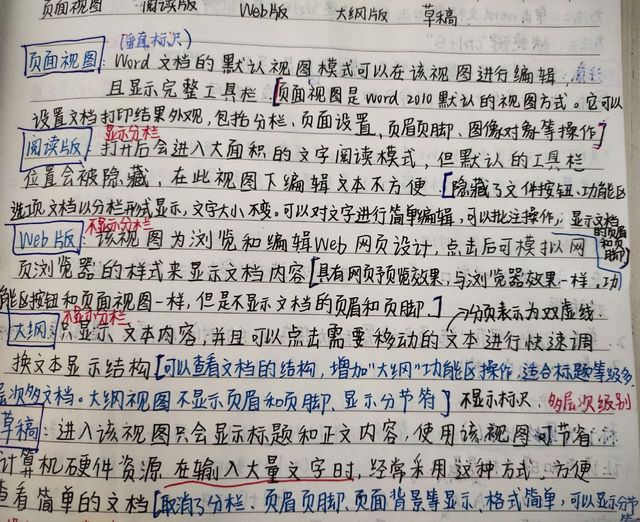 页面视图 阅读版 Web版 大纲版 草稿
(垂直标尺)
页面视图:Word文档的默认视图模式可以在该视图进行编辑,
且显示完整工具栏.[页面视图是word 2010默认的视图方式。它可以
设置文档打印结果外观,包括分栏、页面设置,页眉页脚、图像对象等操作]
显示分栏
阅读版:打开后会进入大面积的文字阅读模式,但默认的工具栏
位置会被隐藏,在此视图下编辑文本不方便.[隐藏了文件按钮、功能区
选项,文档以分栏形式显示,文字大小不变。可以对文字进行简单编辑,可以批注操作;显示文档的页眉和页脚]
不显示分栏
Web版:该视图为浏览和编辑Web网页设计,点击后可模拟网
页浏览器的样式来显示文档内容[具有网页预览效果,与浏览器效果一样,功
能区按钮和页面视图一样,但是不显示文档的页眉和页脚.]→分页表示为双虚线
不显示分栏
大纲:只显示文本内容,并且可以点击需要移动的文本进行快速调
换文本显示结构[可以查看文档的结构,增加"大纲"功能区操作,适合标题等级多
层次多文档。大纲视图不显示页眉和页脚、显示分节符]不显示标尺,多层次级别
草稿:进入该视图只会显示标题和正文内容,使用该视图可节省
计算机硬件资源.在输入大量文字时,经常采用这种方式.方便
查看简单的文档[取消了分栏、页眉页脚、页面背景等显示、格式简单,可以显示分节